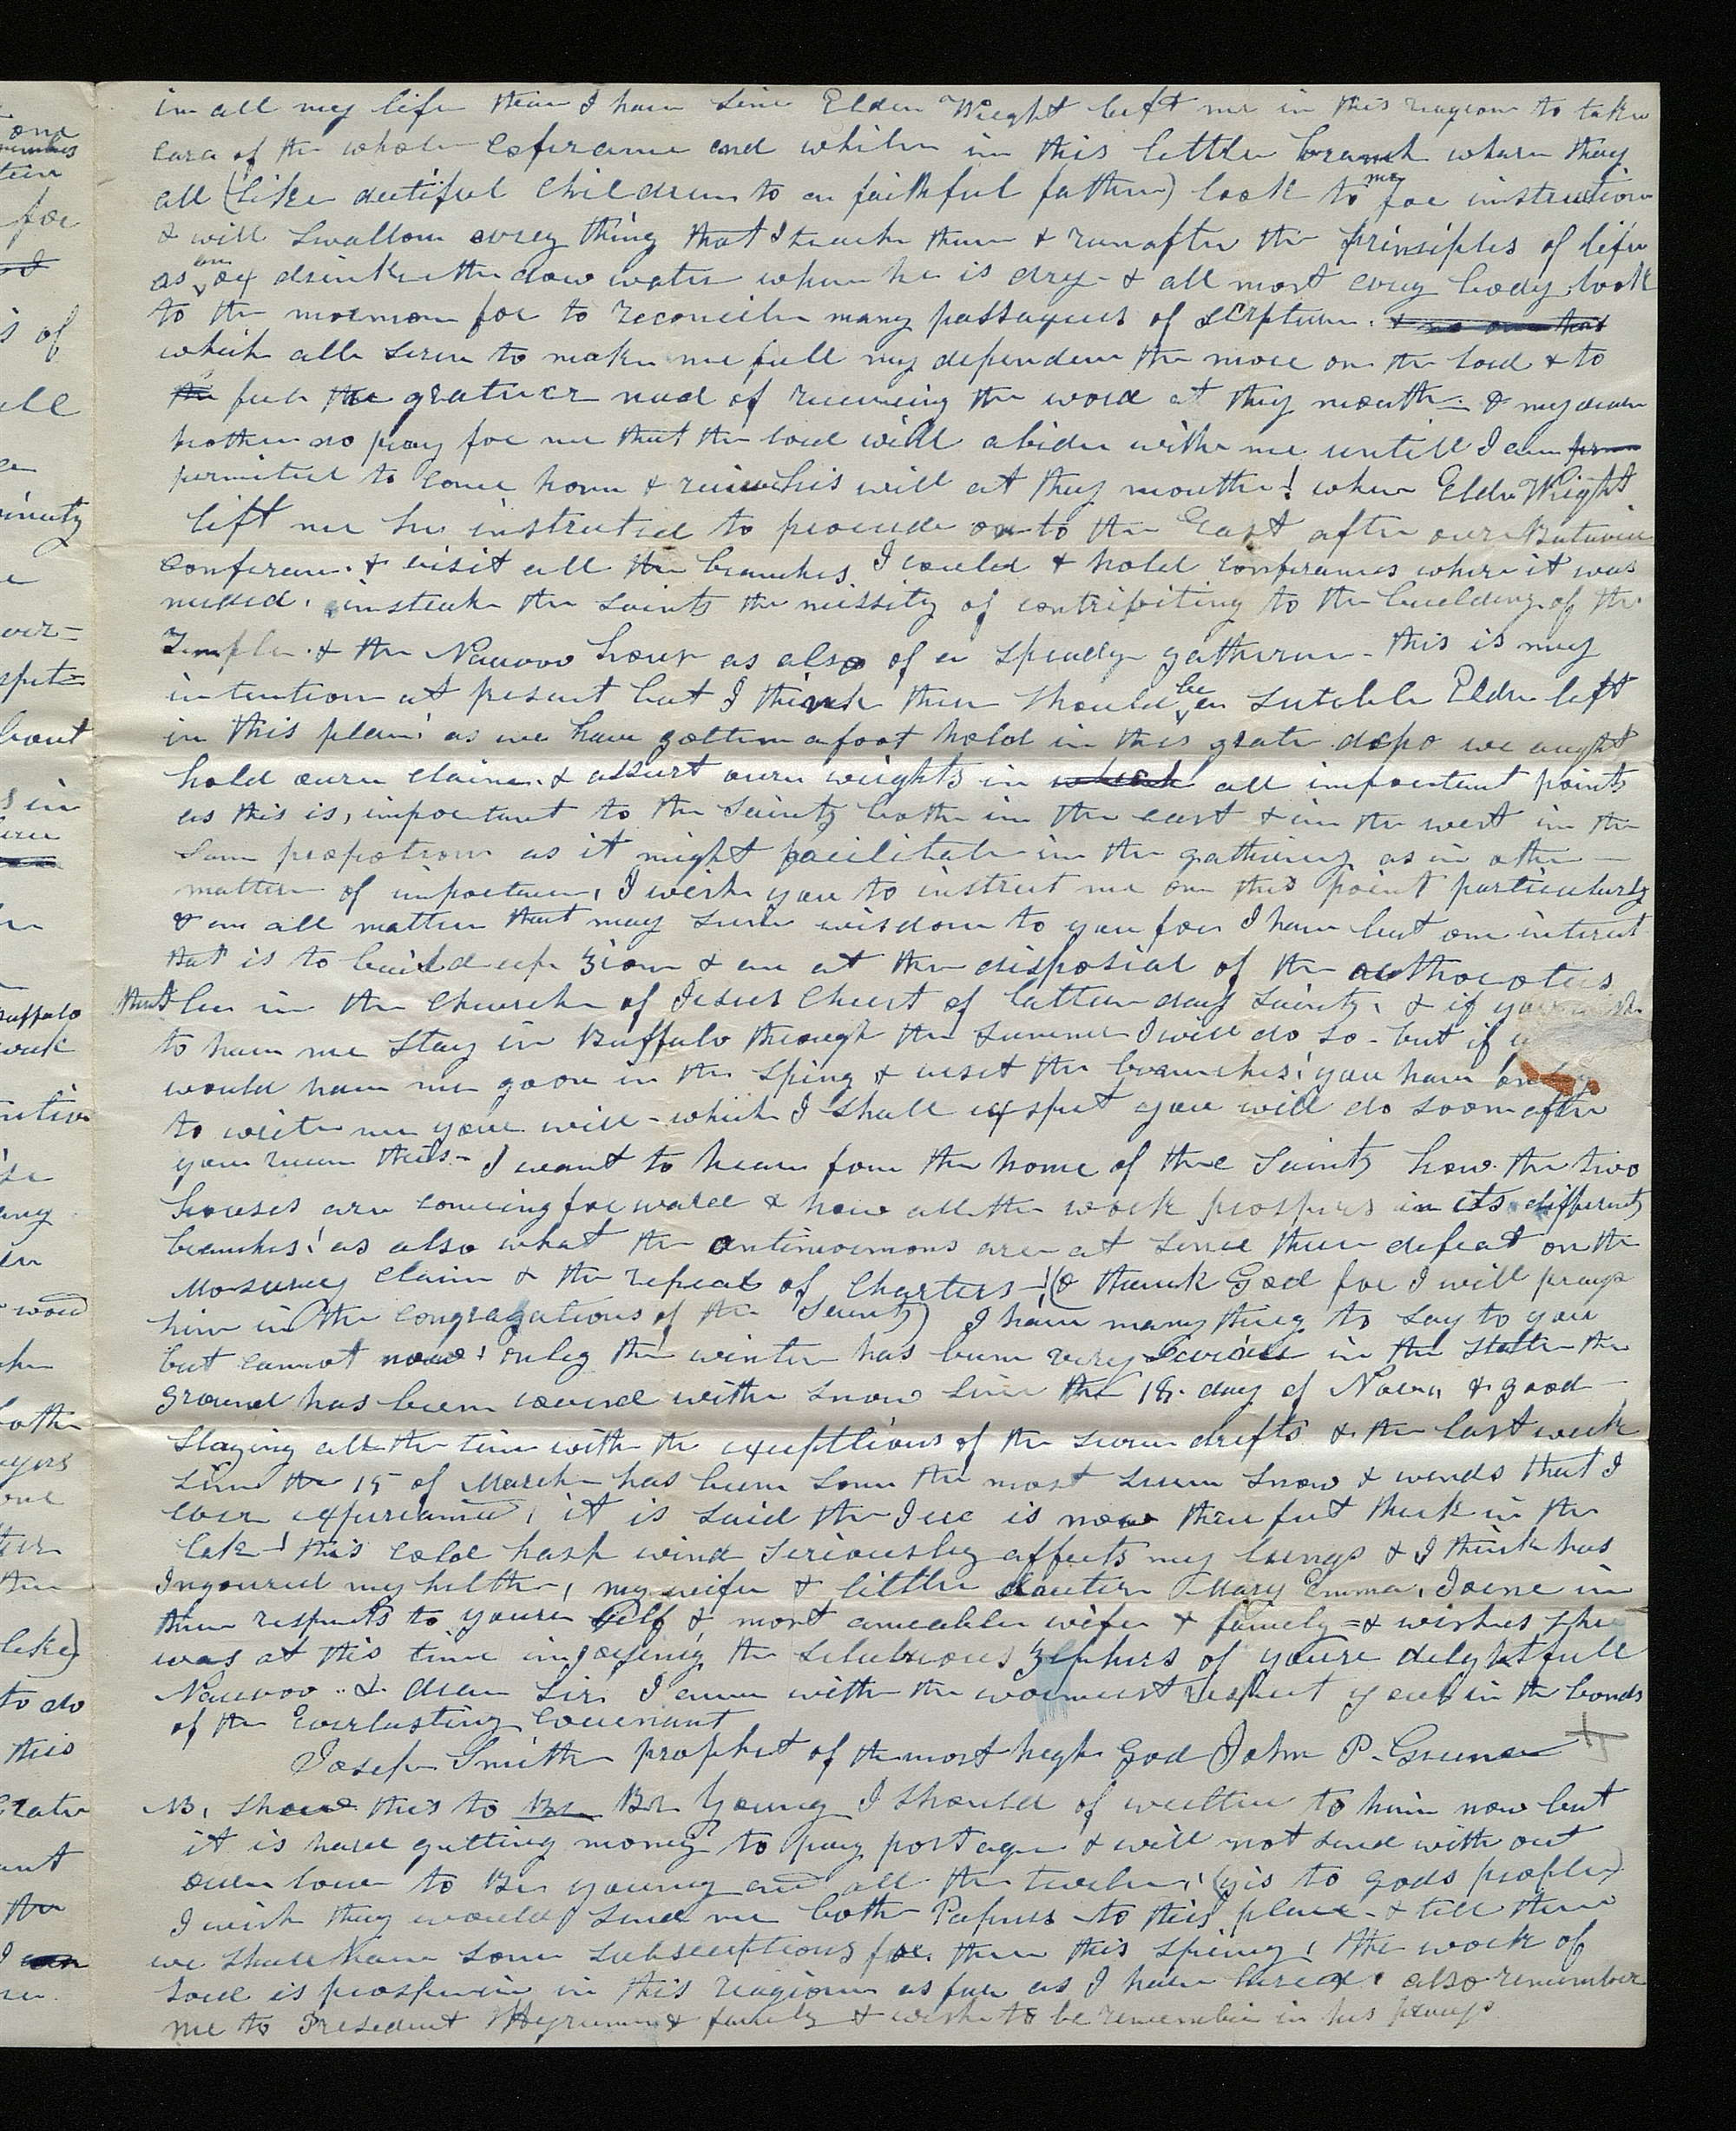 in all my life than I have sinc Elder Wright left me in this reagion to take
care of the whole coferance and while in this little branch whare they
all (like deutiful children to a faithful father) look to me for instruction
& will swallow every thing that I teach them & run after the prinsiples of life
as an ox drinketh down water when he is dry - & all most evry body look
to the mormon for to reconcile many passagues of scrpture. & no one that
which all serve to make me feel my dependenc the more on the Lord & to
the feel the grateer nead of receiveing the word at thy mouth - & my dear
brother do pray for me that the Lord will abide with me untill I am
permited to come home & receive his will at thy mouth! when Elder Wright
left me he instructed to proceede on to the East after our Batavia
conferenc. & visit all the branches I could & hold conferances where it was
needed. & in teach the Saints the nissity of contribiting to the building of the
Temple. & the Nauvoo house as also of a speady gathering - this is my
intention at present but I think there should be a sutable Elder left
in this place! as we have gotten a foot hold in this grate depo we aught
hold oure claim. & assurt oure wrights in which all important points
as this is, important to the Saints both in the east & in the west in the
same propotion as it might facilitate in the gathering as in other
matters of importance, I wish you to instruct me on this point particularly
& on all matters that may seem wisdom to you for I have but one interest
that is to build up Zion & am at the disposial of the authorotes
that be in the Church of Jesus Christ of Latter day Saints, & if you wish
to have me stay in Buffalo through the summer I will do so - but if
would have me go on in the Sping & visit the branches! you have only
to write me your will - which I shall exspect you will do soon after
you receive this - I want to hear from the home of the Saints how the two
houses are comeing forward & how all the work prospers in its different
branches! as also what the antimormons are at since there defeat on the
Mosurey claim & the repeal of Charters -! (O thank God for I will prays
him in the congragations of the Saints) I have many thing to say to you
but cannot now! only the winter has been very Seviour in the State the
ground has been covered with snow since the 18. day of Nov,, & good
slaying all the time with the exceptions of the snow drifts & the last week
since the 15 of March has been some the most severe snow & winds that I
ever experianced, it is said the Ice is now three feet thick in the
lake! this cold harsh wind seriously affects my lungs & I think has
Ingoured my helth, my wife & little dauter Mary Emma, Joine in
there respects to youre self & most ameable wife & family = & wishes she
was at this time injoying the salubrious zephirs of youre delightfull
Nauvoo .. & dear Sir I am with the warmest respect yours in the bonds
of the Everlasting Covenant
Joseph Smith prophet of the most high God John P. Greene
NB, show this to Br Br Young I should of written to him now but
it is hard getting money to pay postage & will not send with out
oure love to Br young and all the twelve, (yis to gods people)
I wish they would send me both Papers to this place - & tell them
we shall have some subscriptions for them this spring, the work of
Lord is prosperin in this reagion as far as I have hired. also remember
me to President Hyrum & family & wish to be remember in his prays